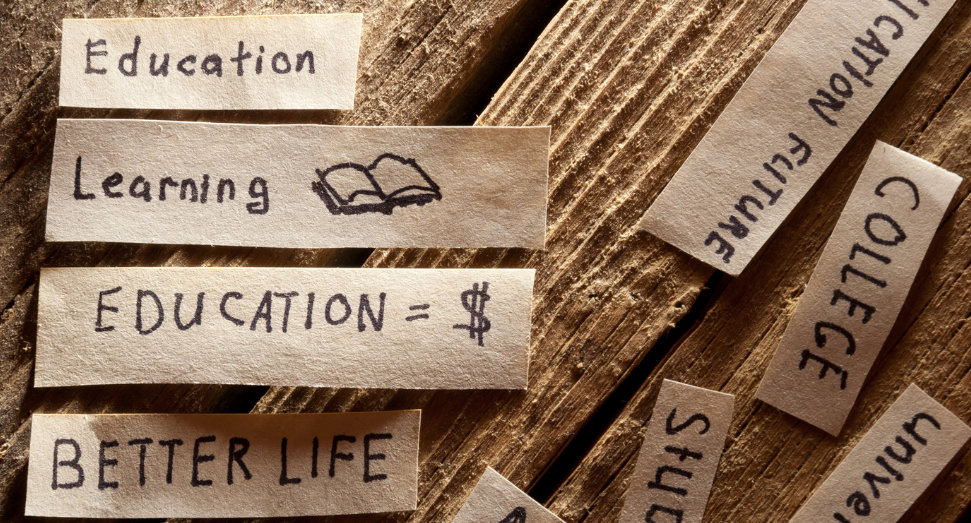 Education
Learning
EDUCATION = $
BETTER LIFE
UCATION FUTURE
COLLEGE
STUD
univer